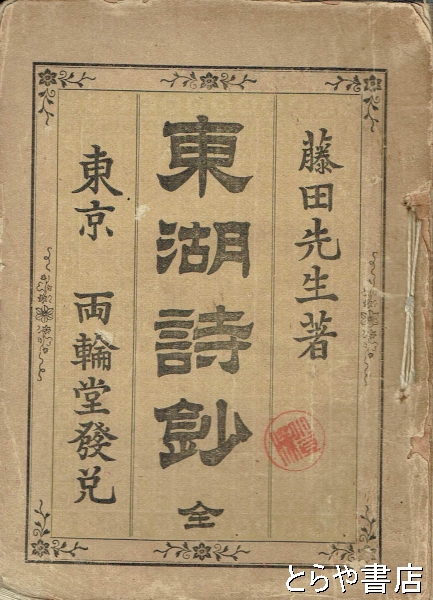 藤田先生著
東湖詩鈔
全
東京 両輪堂發兌
とらや書店